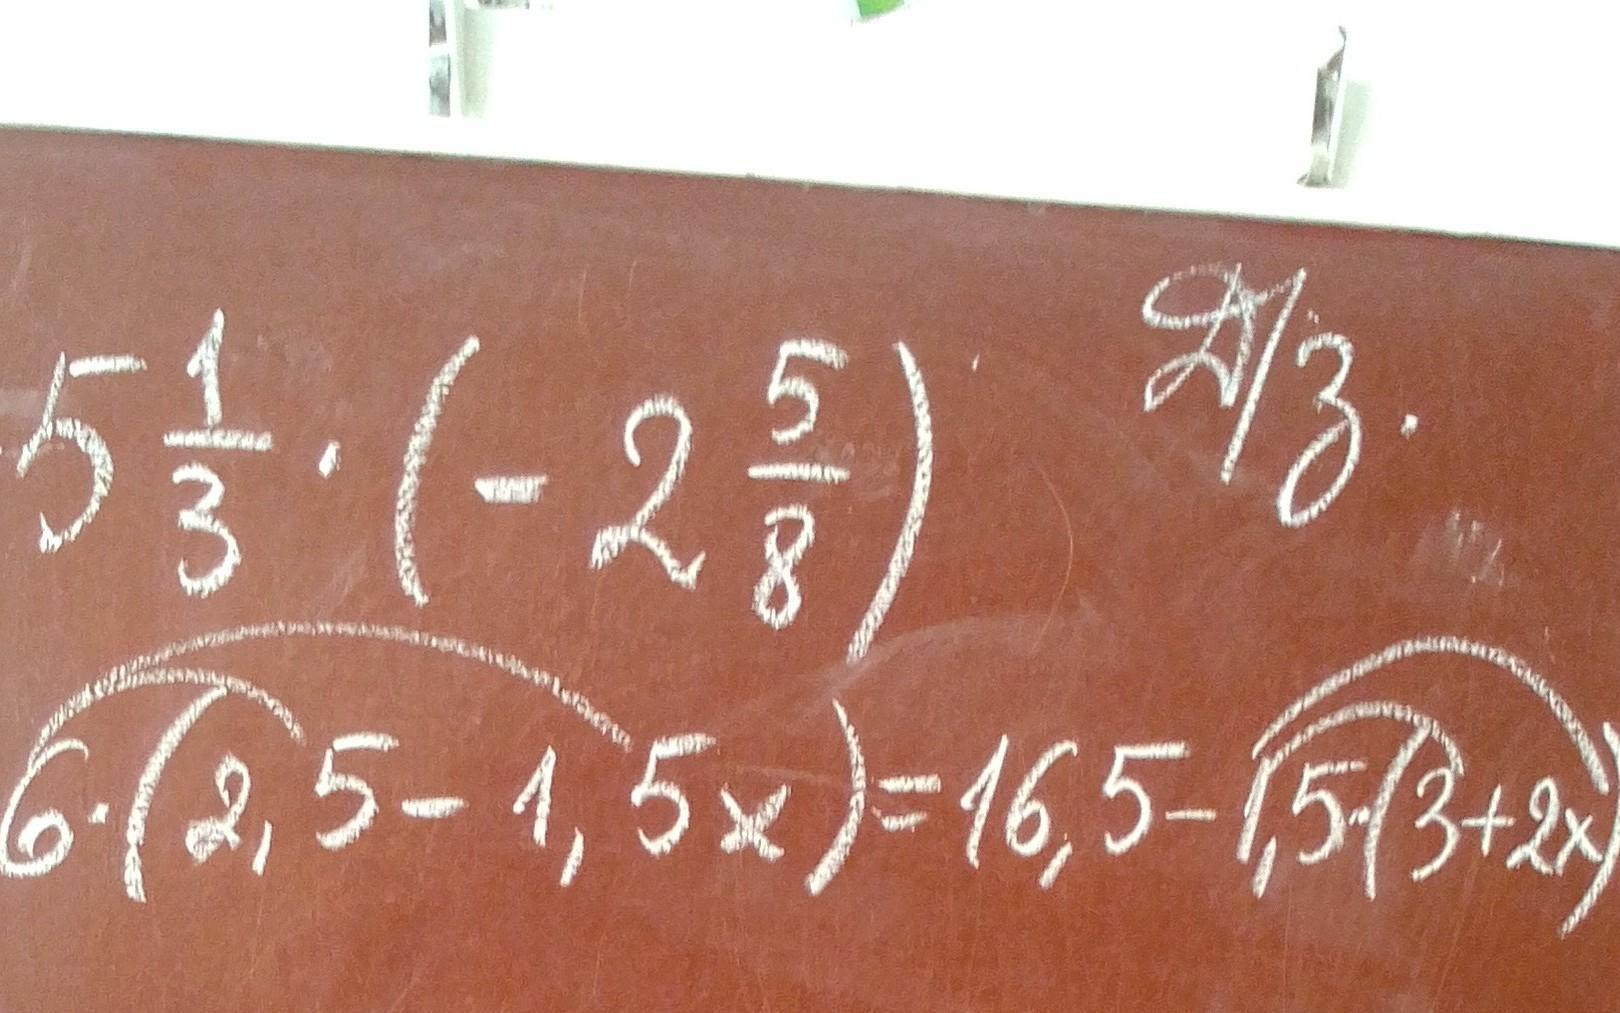 5 1/3 · (- 2 5/8)
Д/з.
6·(2,5 - 1,5x) = 16,5 - 1,5·(3+2x)